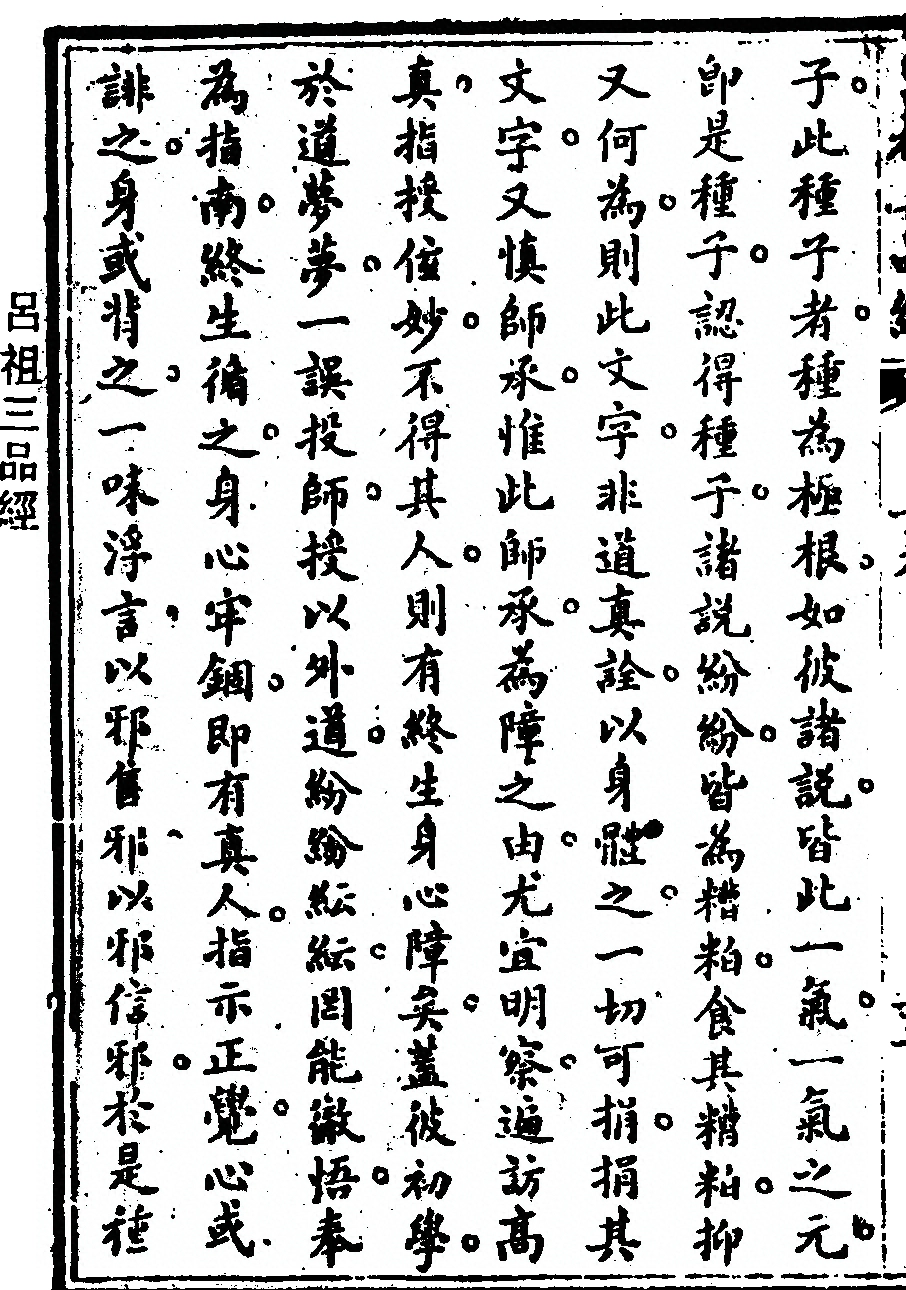 子此種子者種為極根如彼諸說皆此一氣一氣之元
即是種子認得種子諸說紛紛皆為糟粕食其糟粕抑
又何為則此文字非道真詮以身體之一切可捐捐其
文字又慎師承惟此師承為障之由尤宜明察遍訪高
真指授位妙不得其人則有終生身心障矣蓋彼初學
於道夢夢一誤投師授以外道紛紛紜紜罔能徹悟奉
為指南終生循之身心牢錮即有真人指示正覺心或
誹之身或背之一味浮言以邪售邪以邪信邪於是種
呂祖三品經